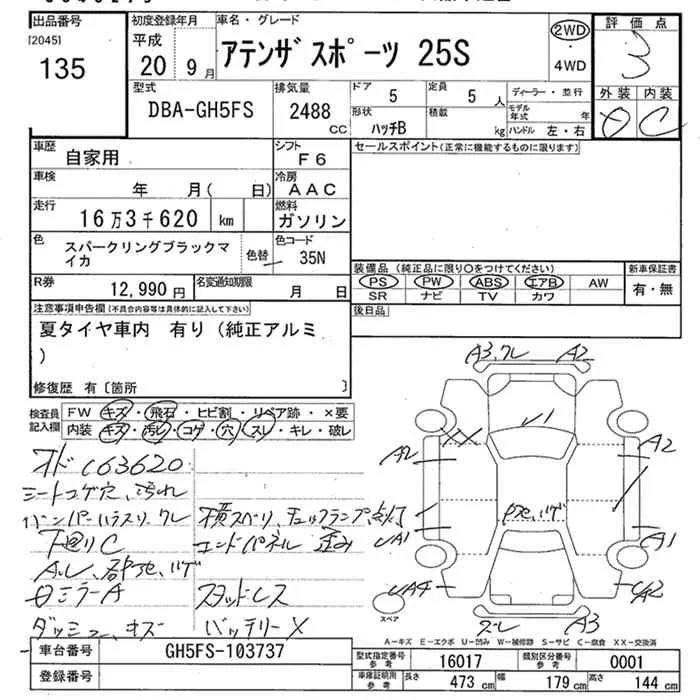 出品番号
[2045]
135
初度登録年月
平成
20 9月
車名・グレード
アテンザスポーツ 25S
2WD
・4WD
評価点
3
外装 内装
C
型式
DBA-GH5FS
排気量
2488
CC
ドア 5
定員 5 人
形状 ハッチB
積載 kg
ディーラー・並行
モデル年式 年
ハンドル 左・右
車歴 自家用
シフト F6
車検 年 月( 日)
冷房 AAC
走行 16万3千620 km
燃料 ガソリン
色 スパークリングブラックマイカ
色替
色コード 35N
R券 12,990円
名変通知期限 月 日
セールスポイント(正常に機能するものに限ります)
装備品 (純正品に限り〇をつけてください)
PS PW ABS エアB AW
SR ナビ TV カワ
新車保証書
有・無
後日品
注意事項申告欄(不具合内容等は具体的に記入して下さい)
夏タイヤ車内 有り(純正アルミ
)
修復歴 有〔箇所 〕
検査員記入欄
FW キズ・飛石・ヒビ割・リペア跡・×要
内装 キズ・汚レ・コゲ・穴・スレ・キレ・破レ
163620
シートコゲ穴、汚れ
下廻りC
エンドパネル 歪み
ミラーA
スタッドレス
バッテリーX
A3,ワレ A2
XX
A2 A2
A1
UA1
UA4 UA2
A3
スペア
A-キズ E-エクボ U-凹み W-補修跡 S-サビ C-腐食 XX-交換済
車台番号 GH5FS-103737
登録番号
型式指定番号 参考 16017
類別区分番号 参考 0001
車庫証明用 参考 長さ 473 cm 幅 179 cm 高さ 144 cm